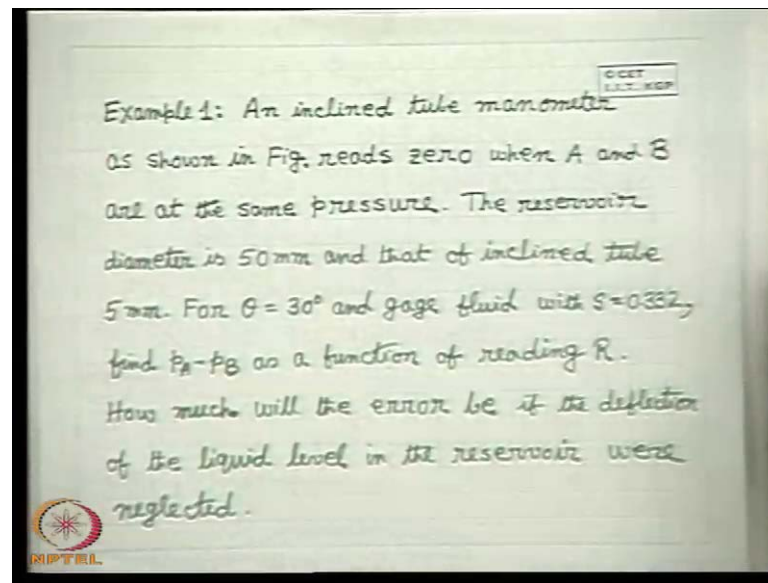 © CET
I.I.T. KGP
Example 1: An inclined tube manometer
as shown in Fig. reads zero when A and B
are at the same pressure. The reservoir
diameter is 50 mm and that of inclined tube
5 mm. For θ = 30° and gage fluid with S = 0.332,
find pA-pB as a function of reading R.
How much will the error be if the deflection
of the liquid level in the reservoir were
neglected.
NPTEL